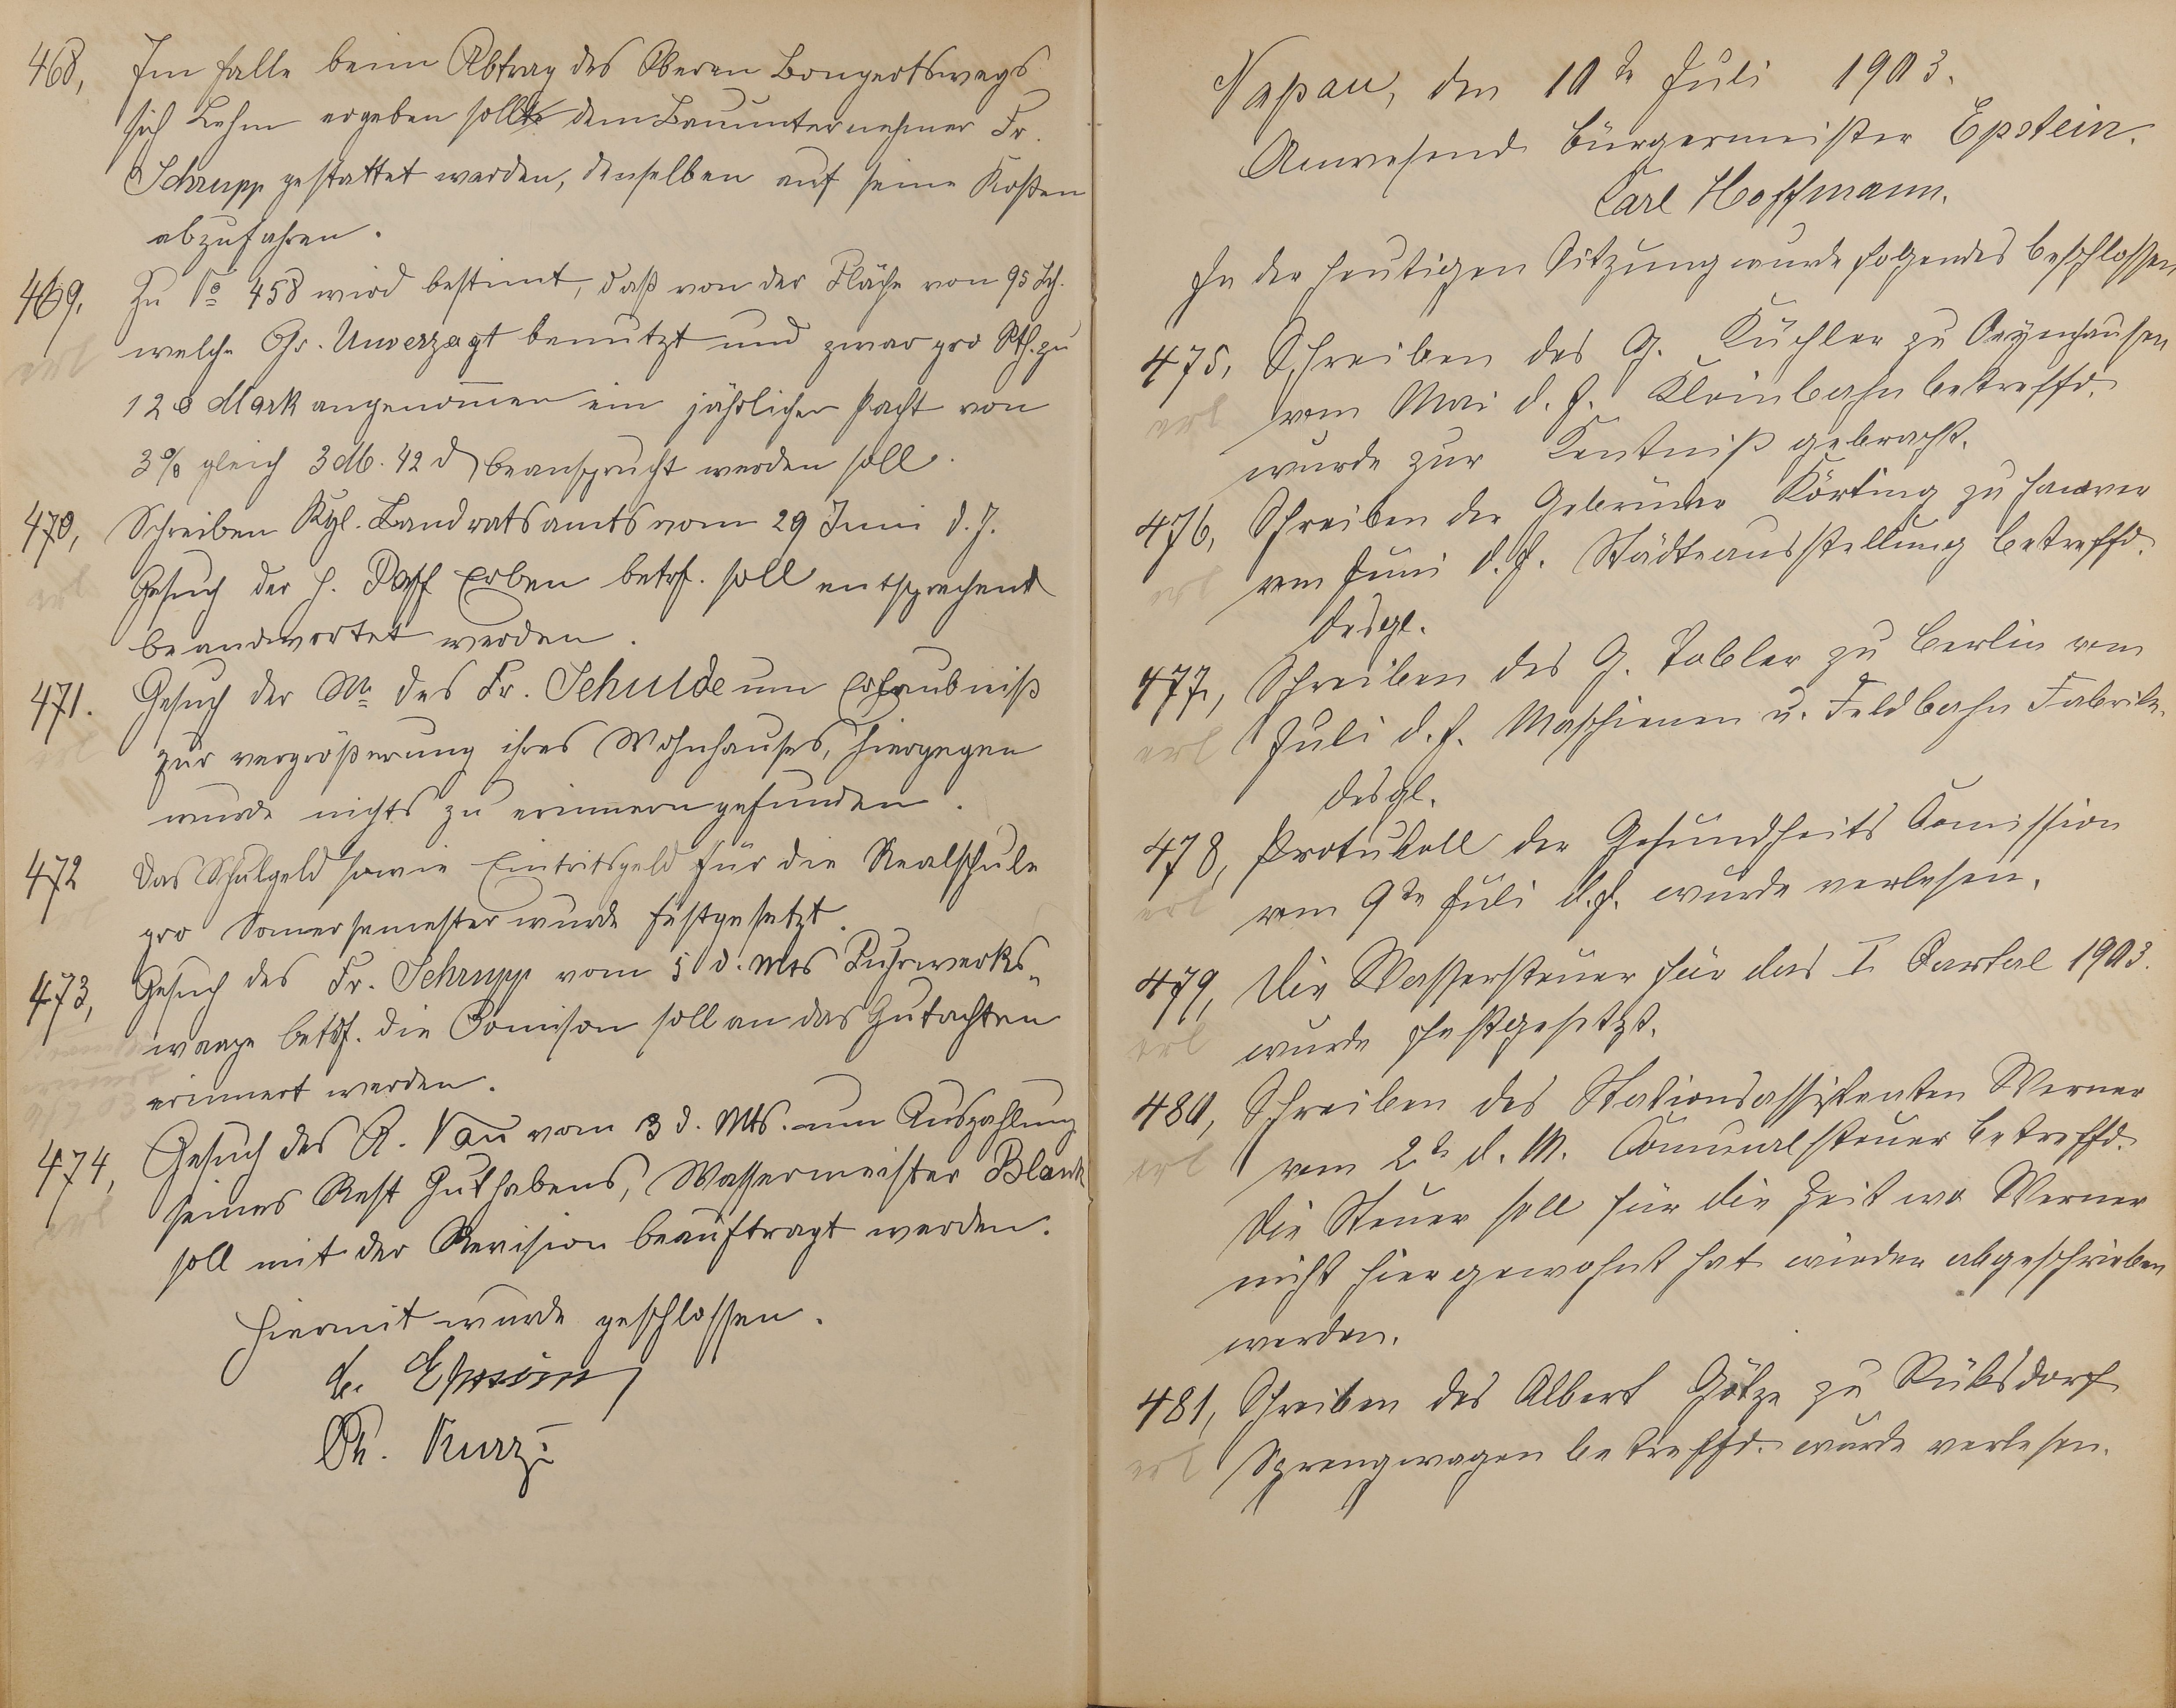 468, Im Falle beim Abtrag des Oberen Bongertswegs
sich Lehm ergeben sollte dem Bauunternehmer Fr.
Schrupp gestattet werden, denselben auf seine Kosten
abzufahren.
469. Zu No 458 wird bestimt, daß von der Fläche von 95 Sch.
erl
welche Chr. Unverzagt benutzt und zwar pro Rth. zu
120 Mark angenom̅en ein jährlicher Pacht von
3% gleich 3 M. 42 d beansprucht werden soll.
470, Schreiben Kgl. Landratsamts vom 29 Juni d. J.
erl
Gesuch der H. Erben betrf. soll entsprechend
beandwortet werden.
471. Gesuch der We des Fr. Schulde um Erlaubniß
zur vergrößerung ihres Wohnhauses, hiergegen
wurde nichts zu erinnern gefunden.
472 Das Schulgeld sowie Eintritsgeld für die Realschule
pro Somersemester wurde festgesetzt.
473, Gesuch des Fr. Schrupp vom 5 d. Mts Fuhrwerks-
waage betrf. die Comison soll an das Gutachten
erinnert werden.
474, Gesuch des R. Nau vom 3 d. Mts. um Auszahlung
erl
seines Rest Guthabens, Wassermeister Blank
soll mit der Revision beauftragt werden.
Hiermit wurde geschlossen.
Epstein
Ph. Kurz
den 10te Juli 1903.
Anwesend Bürgermeister Epstein.
Carl Hoffmann.
In der heutigen Sitzung wurde folgendes beschlossen
475, Schreiben des G. Küchler zu Oeynhausen
erl
vom Mai d. J. Kleinbahn betreffd.
wurde zur Kentniß gebracht.
476, Schreiben der Gebrüder Körting zu Hanover
erl
vom Juni d. J. Städteausstellung betreffd.
desgl.
477, Schreiben des G. Tobler zu Berlin vom
erl
Juli d. J. Maschienen u. Feldbahn Fabrik.
desgl.
478, Protukoll der Gesundheits Comission
erl
vom 9te Juli d. J. wurde verlesen.
479, Die Wassersteuer für das I. Qartal 1903.
erl
wurde festgesetzt.
480, Schreiben des Stationsassistenten Werner
erl
vom 2te d. M. Comunalsteuer betreffd.
Die Steuer soll für die Zeit wo Werner
nicht hier gewohnt hat wieder abgeschrieben
werden.
481, Schreiben des Albert Götze zu Rüksdorf
erl
Sprengwagen betreffd. wurde verlesen.